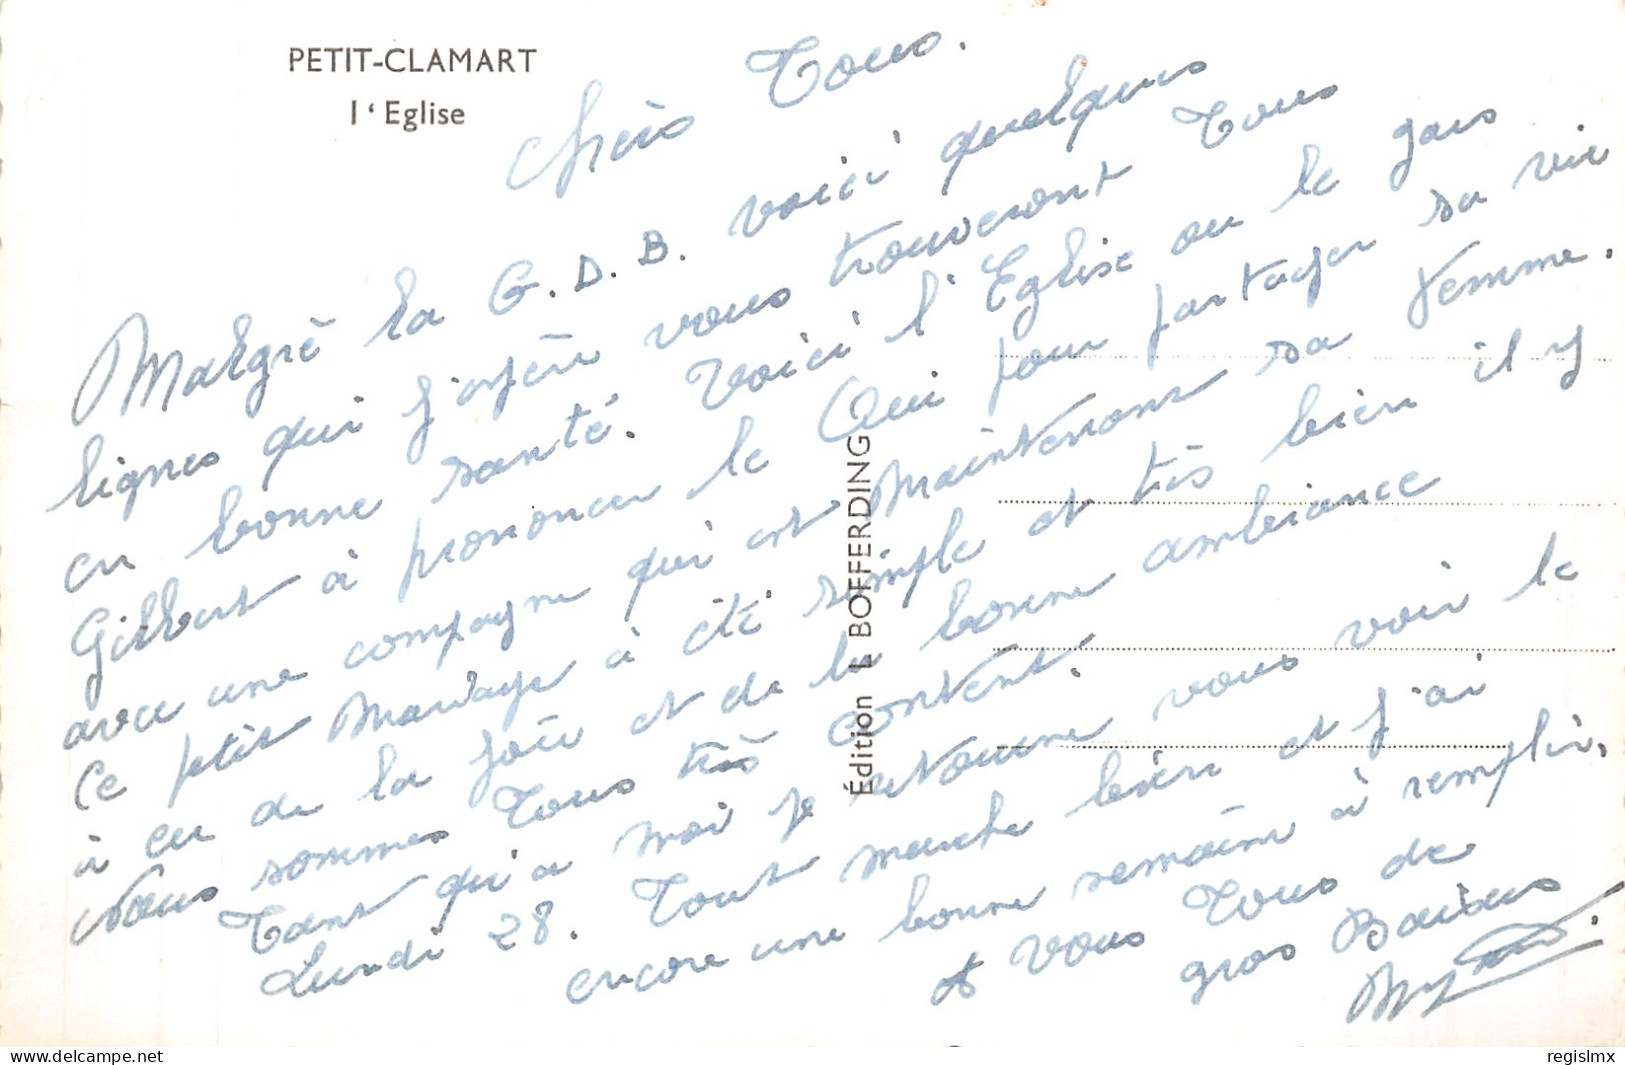 PETIT-CLAMART
l'Eglise
Chers Tous.
Malgré la G.D.B. voici quelques
lignes qui j'espère vous trouveront Tous
en bonne santé. Voici l'Eglise ou le gars
Gilbert à prononcer le Oui pour partager sa vie
avec une compagne qui est Maintenant sa femme.
Ce petit Mariage à été simple et très bien il y
à eu de la joie et de la bonne ambiance
Nous sommes Tous très content.
Tant qu'a moi je retourne vous voir le
Lundi 28. Tout marche bien et j'ai
encore une bonne semaine à remplir.
A vous Tous de
gros Baisers
Édition L BOFFERDING
delcampe.net
regislmx